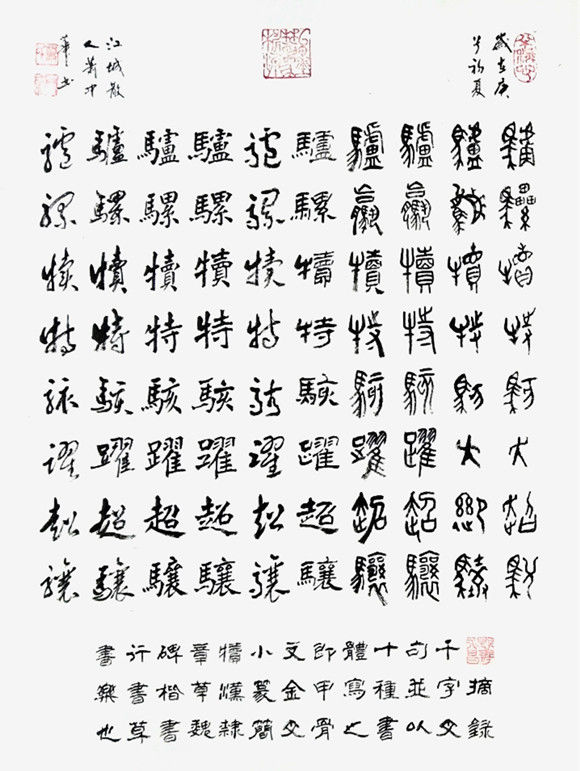 歲在庚
子初夏
驢騾犢特駭躍超驤
驢騾犢特駭躍超驤
驢騾犢特駭躍超驤
驢騾犢特駭躍超驤
驢騾犢特駭躍超驤
驢騾犢特駭躍超驤
驢騾犢特駭躍超驤
驢騾犢特駭躍超驤
驢騾犢特駭躍超驤
驢騾犢特駭躍超驤
江城散
人蕭中
華书
摘錄
千字文
句並以
十種書
體寫之
即甲骨
文金文
小篆簡
牘漢隸
章草魏
碑楷書
行書草
書也